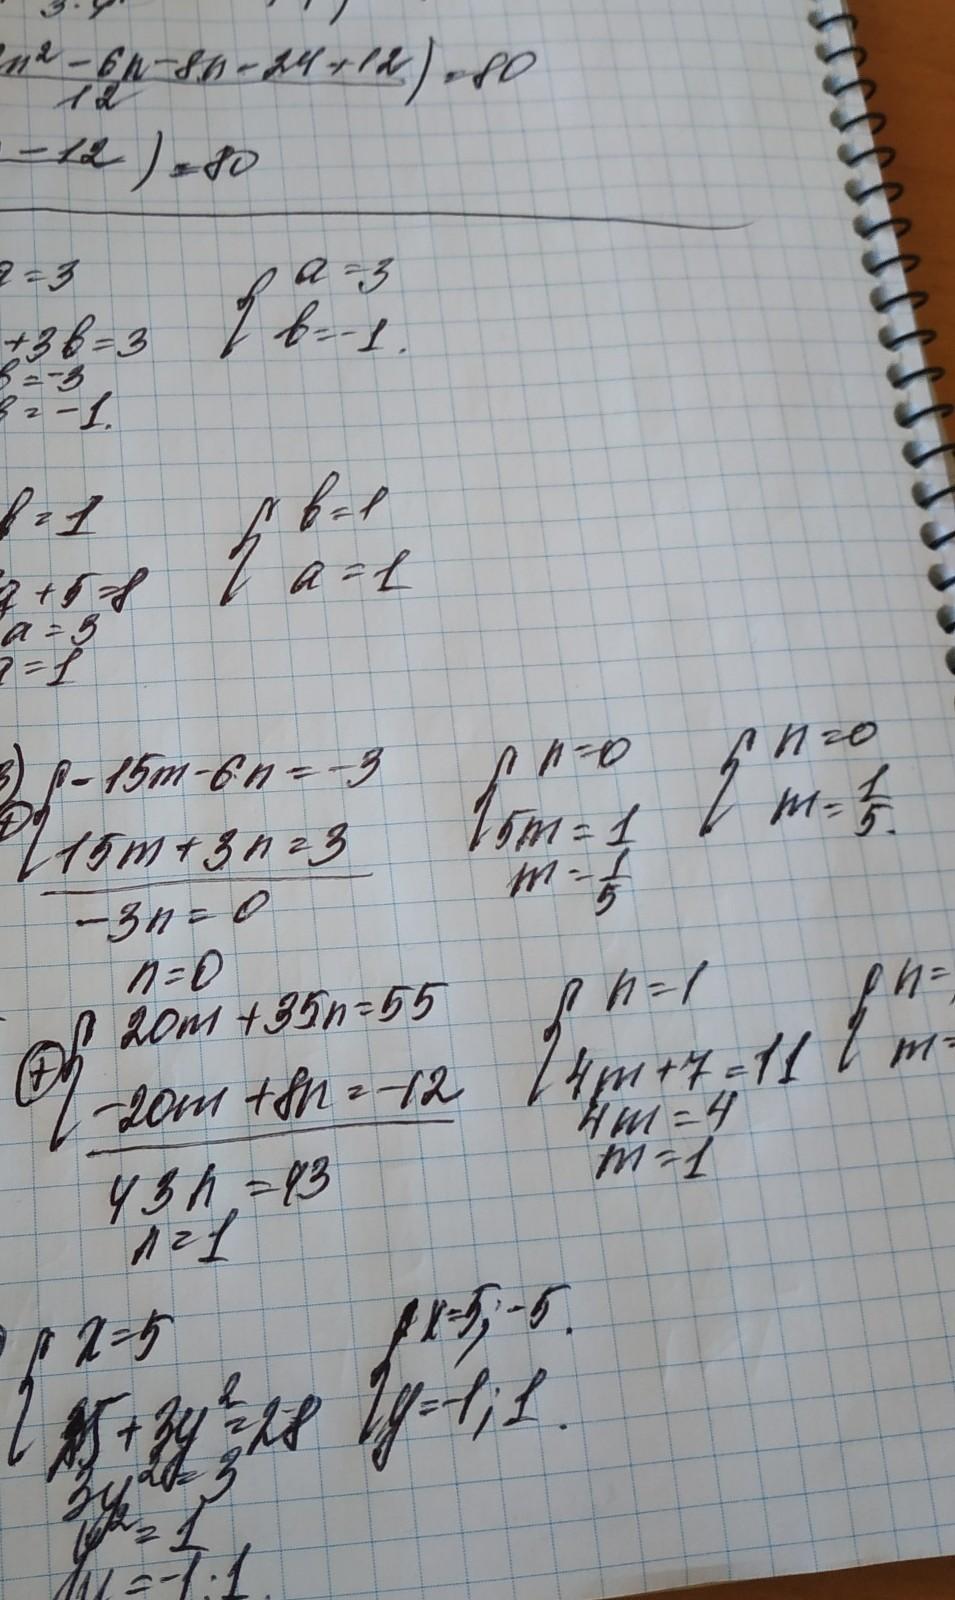 n² - 6n - 8n - 24 + 12) = 80
12
- 12) = 80
a = 3
{ a = 3
+ 3b = 3
b = -1.
b = -3
b = -1.
b = 1
{ b = 1
a + 5 = 8
a = 1
a = 3
a = 1
3) { -15m - 6n = -3
15m + 3n = 3
-3n = 0
n = 0
{ n = 0
5m = 1
m = 1/5
{ n = 0
m = 1/5.
+ { 20m + 35n = 55
-20m + 8n = -12
43n = 43
n = 1
{ n = 1
4m + 7 = 11
4m = 4
m = 1
{ n =
m =
{ x = 5
25 + 3y² = 28
3y² = 3
y² = 1
y = -1; 1.
{ x = 5; -5.
y = -1; 1.